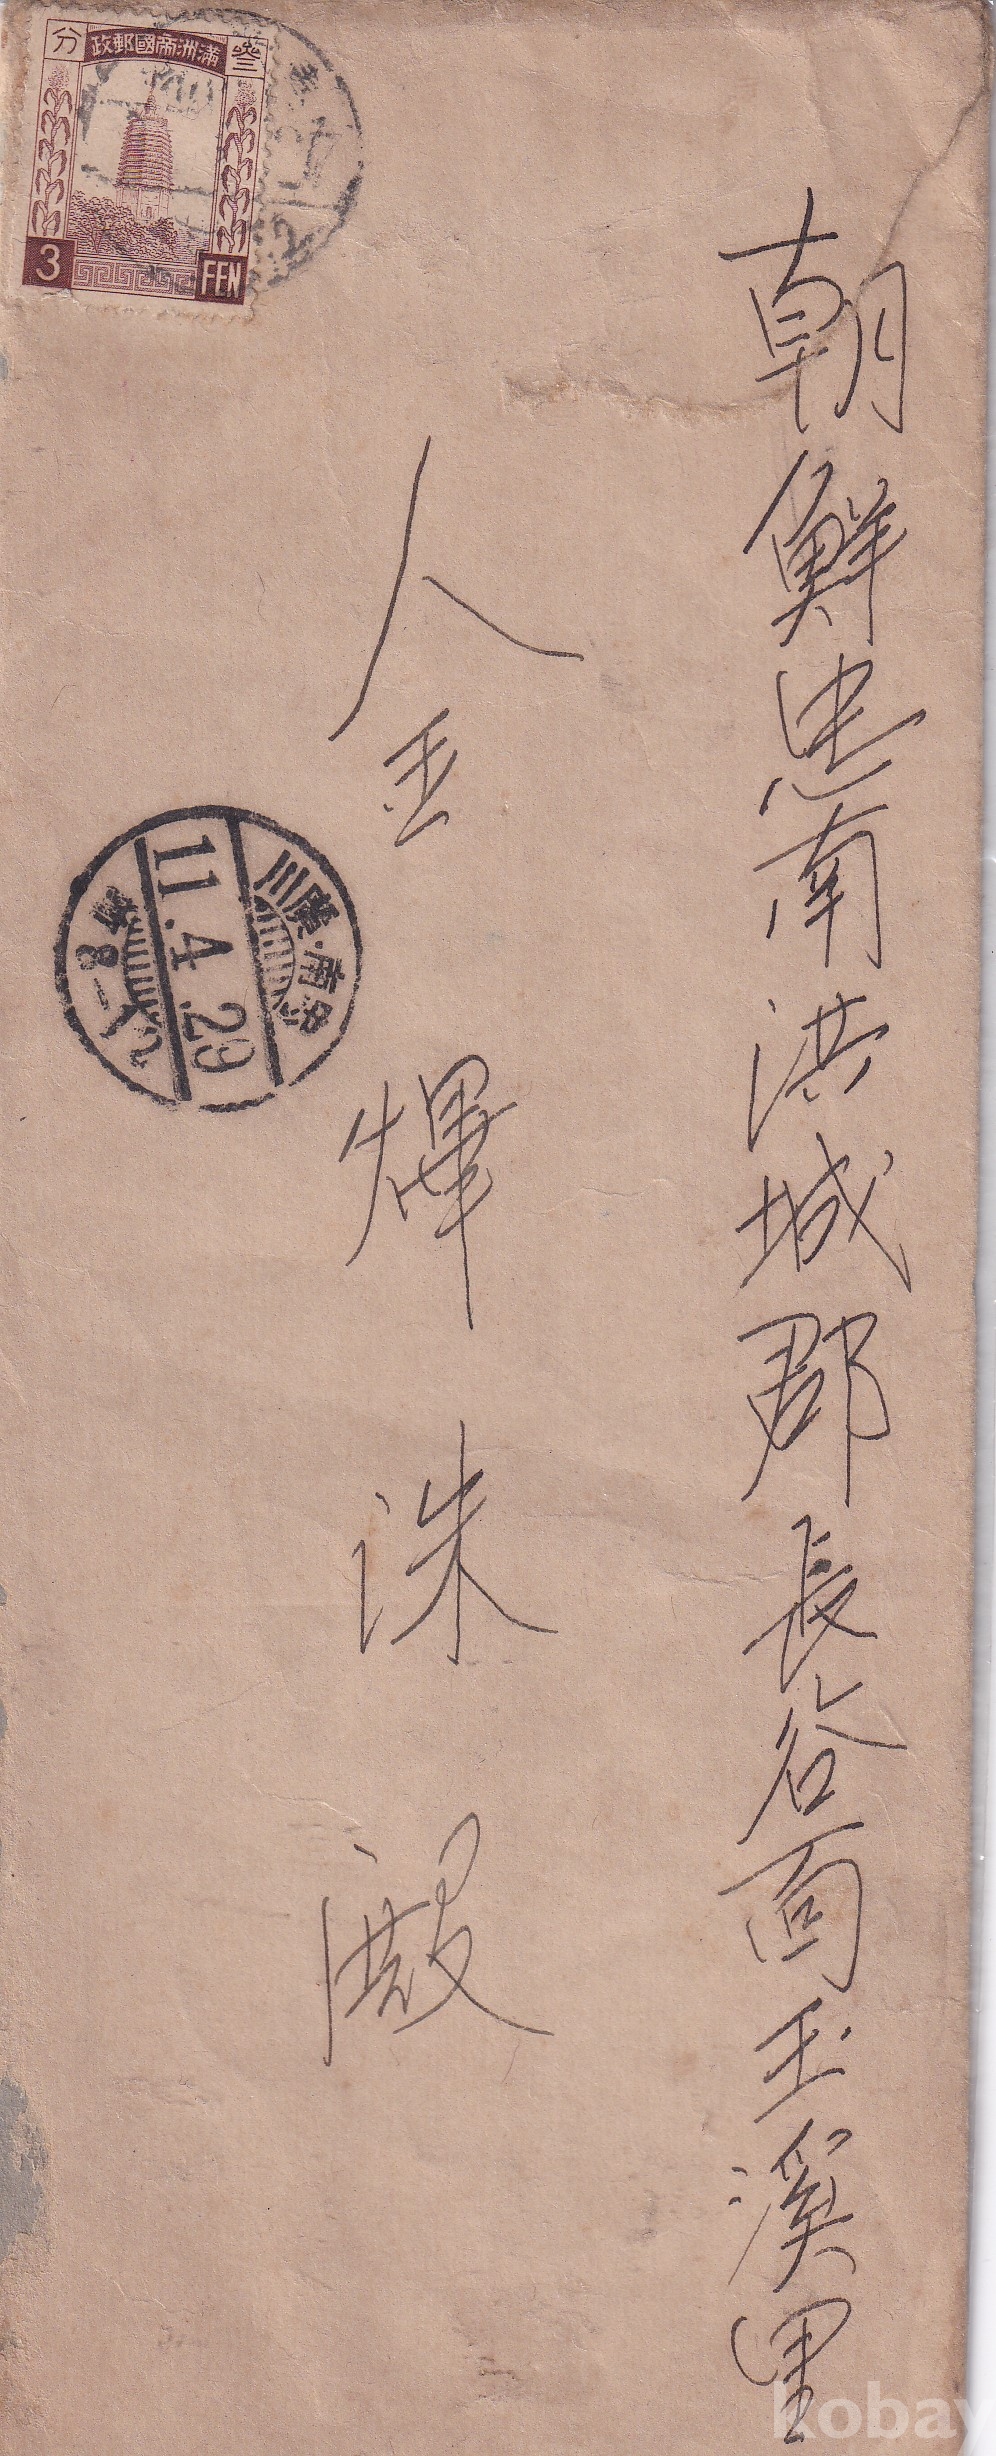 朝鮮忠南洪城郡長谷面玉溪里
金煇洙殿
政郵國帝洲滿
叄
分
3
FEN
忠南・廣川
11.4.29
kobay